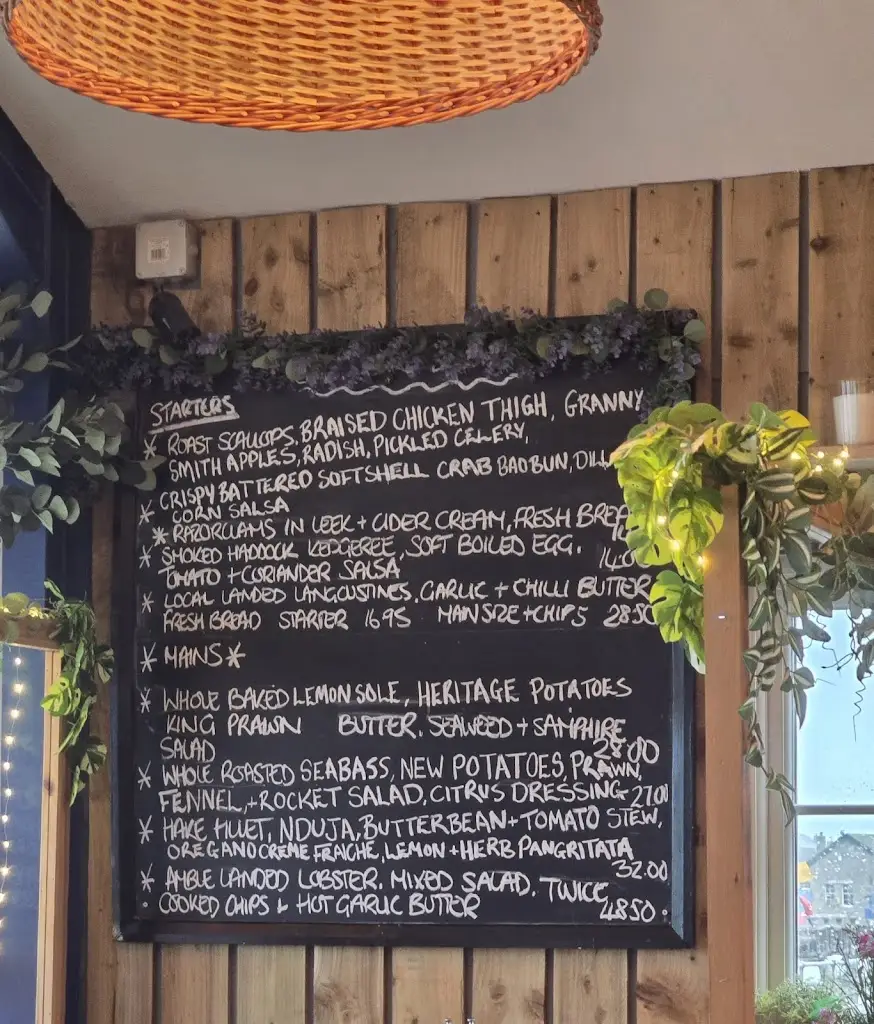 STARTERS
* ROAST SCALLOPS, BRAISED CHICKEN THIGH, GRANNY
SMITH APPLES, RADISH, PICKLED CELERY,
* CRISPY BATTERED SOFTSHELL CRAB BAO BUN, DILL
CORN SALSA
* RAZORCLAMS IN LEEK + CIDER CREAM, FRESH BREA
* SMOKED HADDOCK KEDGEREE, SOFT BOILED EGG.
TOMATO + CORIANDER SALSA
* LOCAL LANDED LANGOUSTINES, GARLIC + CHILLI BUTTER
FRESH BREAD STARTER 16.95 MAIN SIZE + CHIPS 28.50
* MAINS *
* WHOLE BAKED LEMON SOLE, HERITAGE POTATOES
KING PRAWN BUTTER. SEAWEED + SAMPHIRE
SALAD 28.00
* WHOLE ROASTED SEABASS, NEW POTATOES, PRAWN,
FENNEL, + ROCKET SALAD, CITRUS DRESSING 27.00
* HAKE FILLET, NDUJA, BUTTERBEAN + TOMATO STEW,
OREGANO CREME FRAICHE, LEMON + HERB PANGRITATA
32.00
* AMBLE LANDED LOBSTER. MIXED SALAD. TWICE
COOKED CHIPS & HOT GARLIC BUTTER 48.50